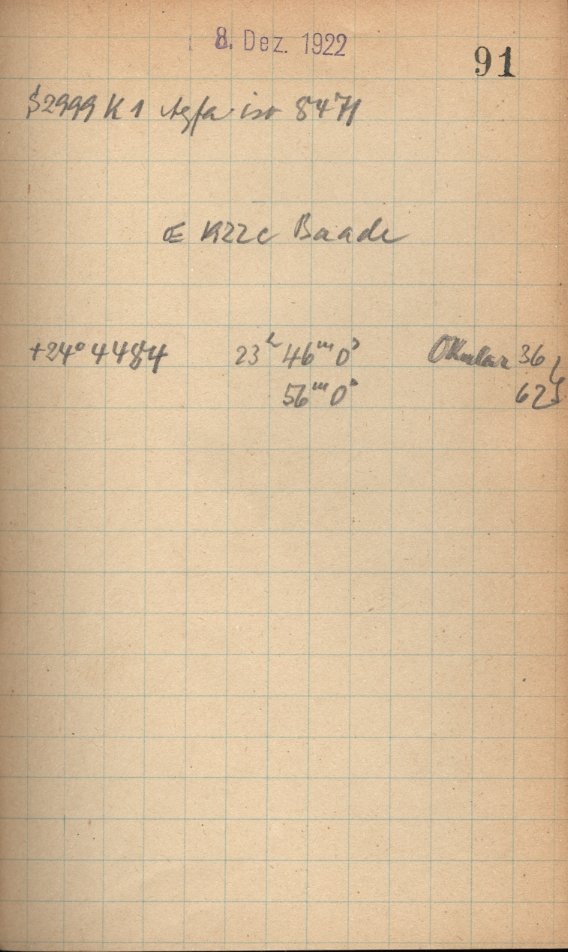 8. Dez. 1922
91
S2999 K1 Agfa iso 8471
1922c Baade
+24° 4484 23ʰ 46ᵐ 0ˢ Okular 36
56ᵐ 0ˢ 62